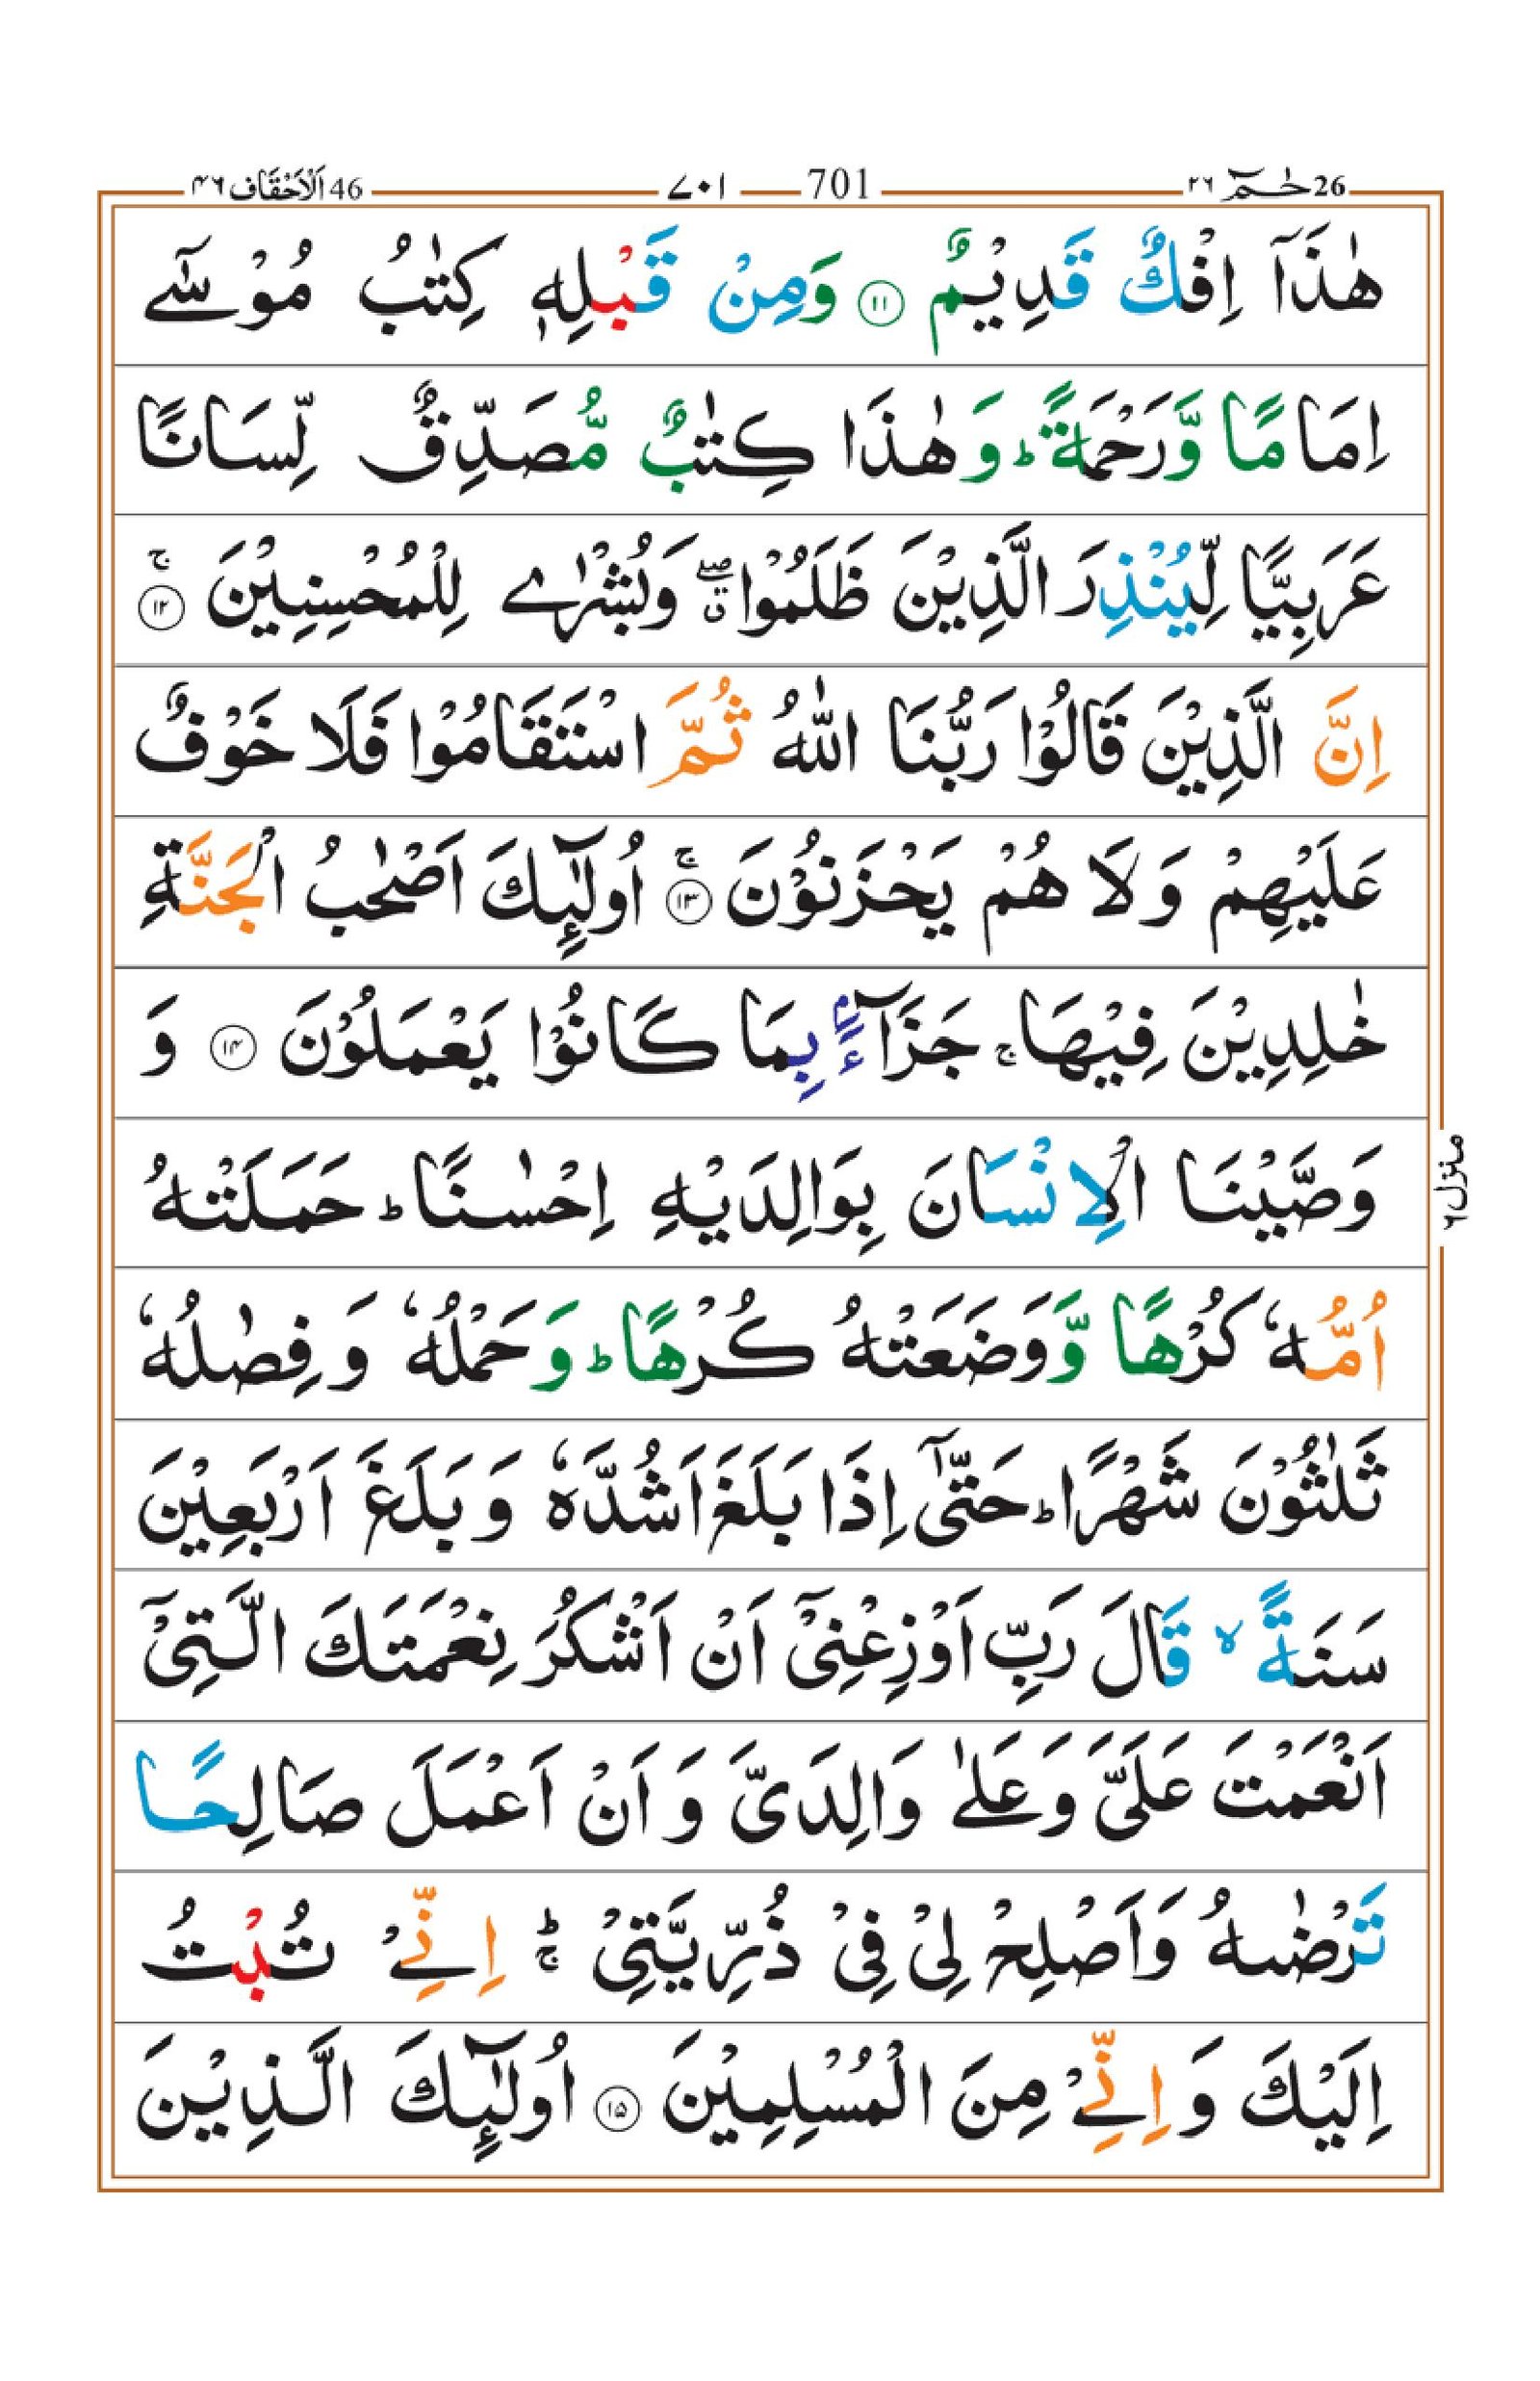 26 حٰمٓ ۲۶
701 ۷۰۱
46 اَلْاَحْقَاف ۴۶
هٰذَاۤ اِفْكٌ قَدِيْمٌ ۱۱ وَمِنْ قَبْلِهٖ كِتٰبُ مُوْسٰۤے
اِمَامًا وَّرَحْمَةً ؕ وَهٰذَا كِتٰبٌ مُّصَدِّقٌ لِّسَانًا
عَرَبِيًّا لِّيُنْذِرَ الَّذِيْنَ ظَلَمُوْا ۖق وَبُشْرٰے لِلْمُحْسِنِيْنَ ۚ ۱۲
اِنَّ الَّذِيْنَ قَالُوْا رَبُّنَا اللّٰهُ ثُمَّ اسْتَقَامُوْا فَلَا خَوْفٌ
عَلَيْهِمْ وَلَا هُمْ يَحْزَنُوْنَ ۚ ۱۳ اُولٰٓئِكَ اَصْحٰبُ الْجَنَّةِ
خٰلِدِيْنَ فِيْهَا ۚ جَزَآءًۢ بِمَا كَانُوْا يَعْمَلُوْنَ ۱۴ وَ
وَصَّيْنَا الْاِنْسَانَ بِوَالِدَيْهِ اِحْسٰنًا ؕ حَمَلَتْهُ
اُمُّهٗ كُرْهًا وَّوَضَعَتْهُ كُرْهًا ؕ وَحَمْلُهٗ وَفِصٰلُهٗ
ثَلٰثُوْنَ شَهْرًا ؕ حَتّٰۤى اِذَا بَلَغَ اَشُدَّهٗ وَبَلَغَ اَرْبَعِيْنَ
سَنَةً ۙ قَالَ رَبِّ اَوْزِعْنِیْۤ اَنْ اَشْكُرَ نِعْمَتَكَ الَّتِیْۤ
اَنْعَمْتَ عَلَیَّ وَعَلٰى وَالِدَیَّ وَاَنْ اَعْمَلَ صَالِحًا
تَرْضٰىهُ وَاَصْلِحْ لِیْ فِیْ ذُرِّيَّتِیْ ؕۚ اِنِّےْ تُبْتُ
اِلَيْكَ وَاِنِّےْ مِنَ الْمُسْلِمِيْنَ ۱۵ اُولٰٓئِكَ الَّذِيْنَ
منزل ۶